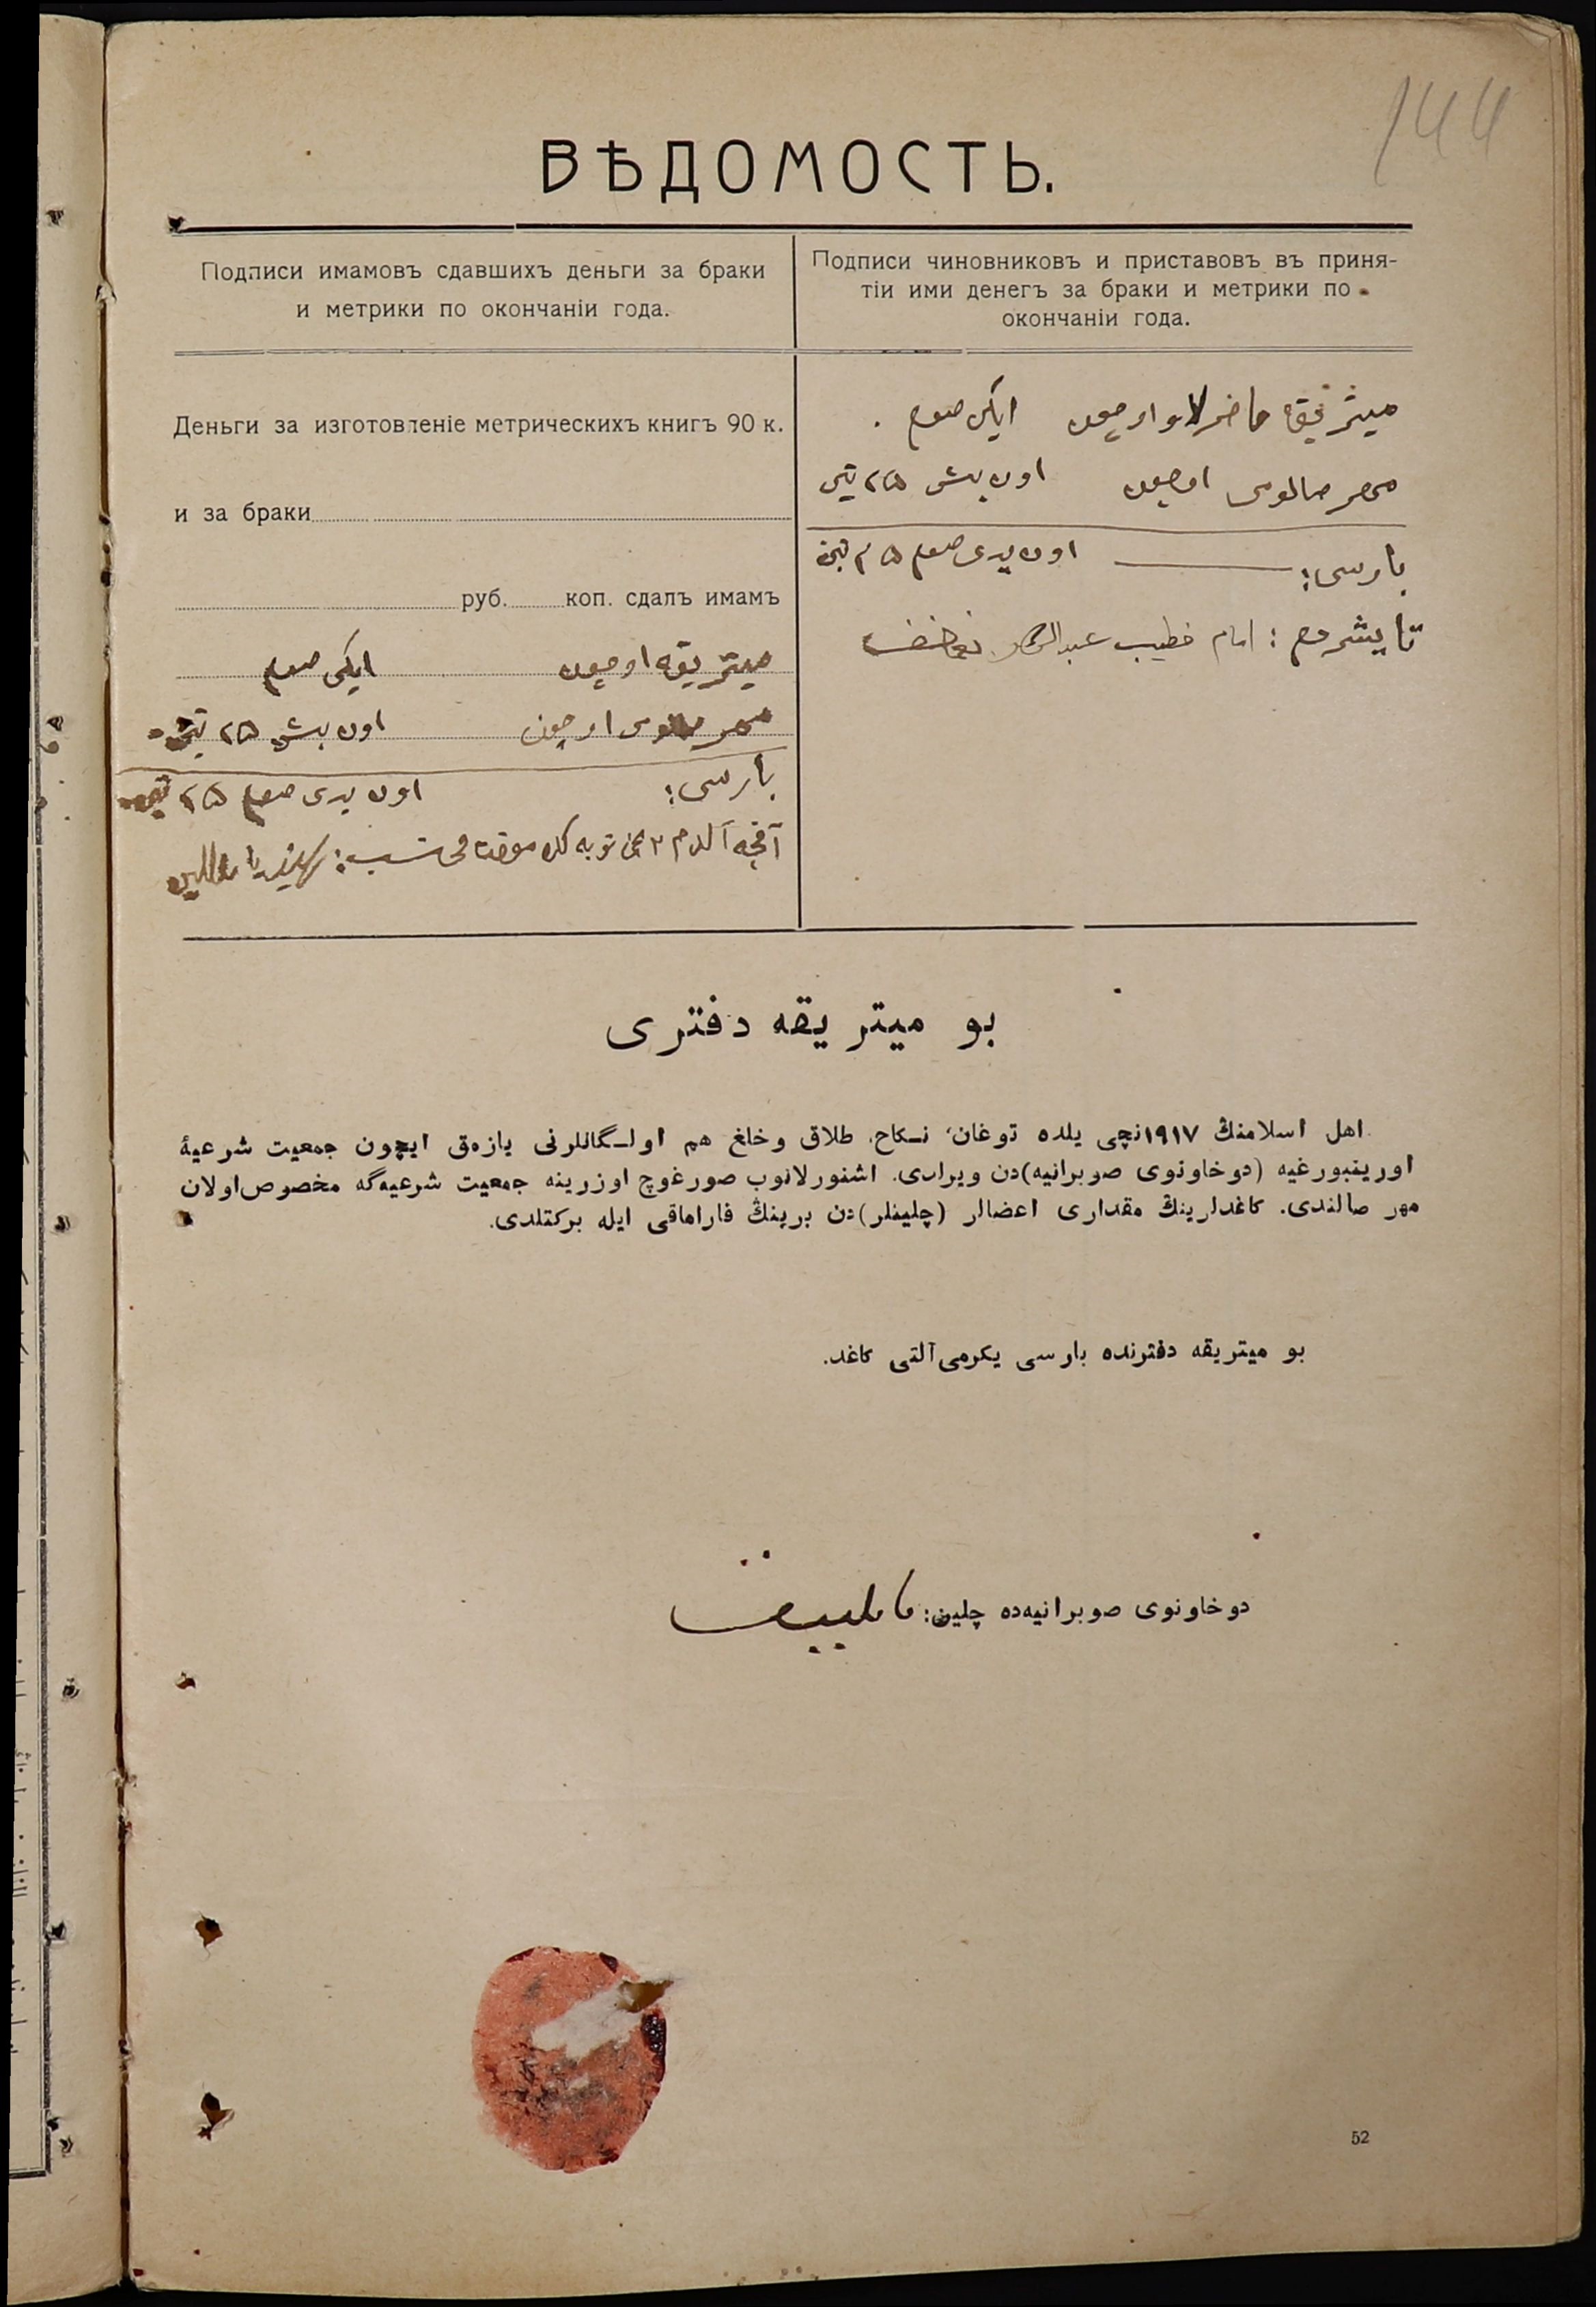 144
ВѢДОМОСТЬ.
Подписи имамовъ сдавшихъ деньги за браки
и метрики по окончаніи года.
Подписи чиновниковъ и приставовъ въ приня-
тіи ими денегъ за браки и метрики по
окончаніи года.
Деньги за изготовленіе метрическихъ книгъ 90 к.
и за браки
руб. коп. сдалъ имамъ
ميتريقه اوچون ايكی صوم
مهر صالوی اوچون اون بش ٢٥ تين
بارسی: اون يدی صوم ٢٥ تين
آقچه آلدم ٢ نچی
ميتريقه حاضرلاو اوچون ايكی صوم .
مهر صالوی اوچون اون بش ٢٥ تين
بارسی: اون يدی صوم ٢٥ تين
تابشردم : امام خطيب
بو ميتريقه دفتری
اهل اسلامنڭ ١٩١٧نچی يلده توغان، نـكاح، طلاق وخلع هم اولـگانلرنی يازمق ايچون جمعيت شرعيۀ
اورينبورغيه (دوخاونوی صوبرانيه)دن ويرلدی. اشنورلانوب صورغوچ اوزرينه جمعيت شرعيه‌گه مخصوص اولان
مهر صالندی. كاغدلرينڭ مقداری اعضالر (چلينلر)دن برينڭ قاراماقی ايله بركتلدی.
بو ميتريقه دفترنده بارسی يكرمی آلتی كاغد.
دوخاونوی صوبرانيه‌ده چلين:
52